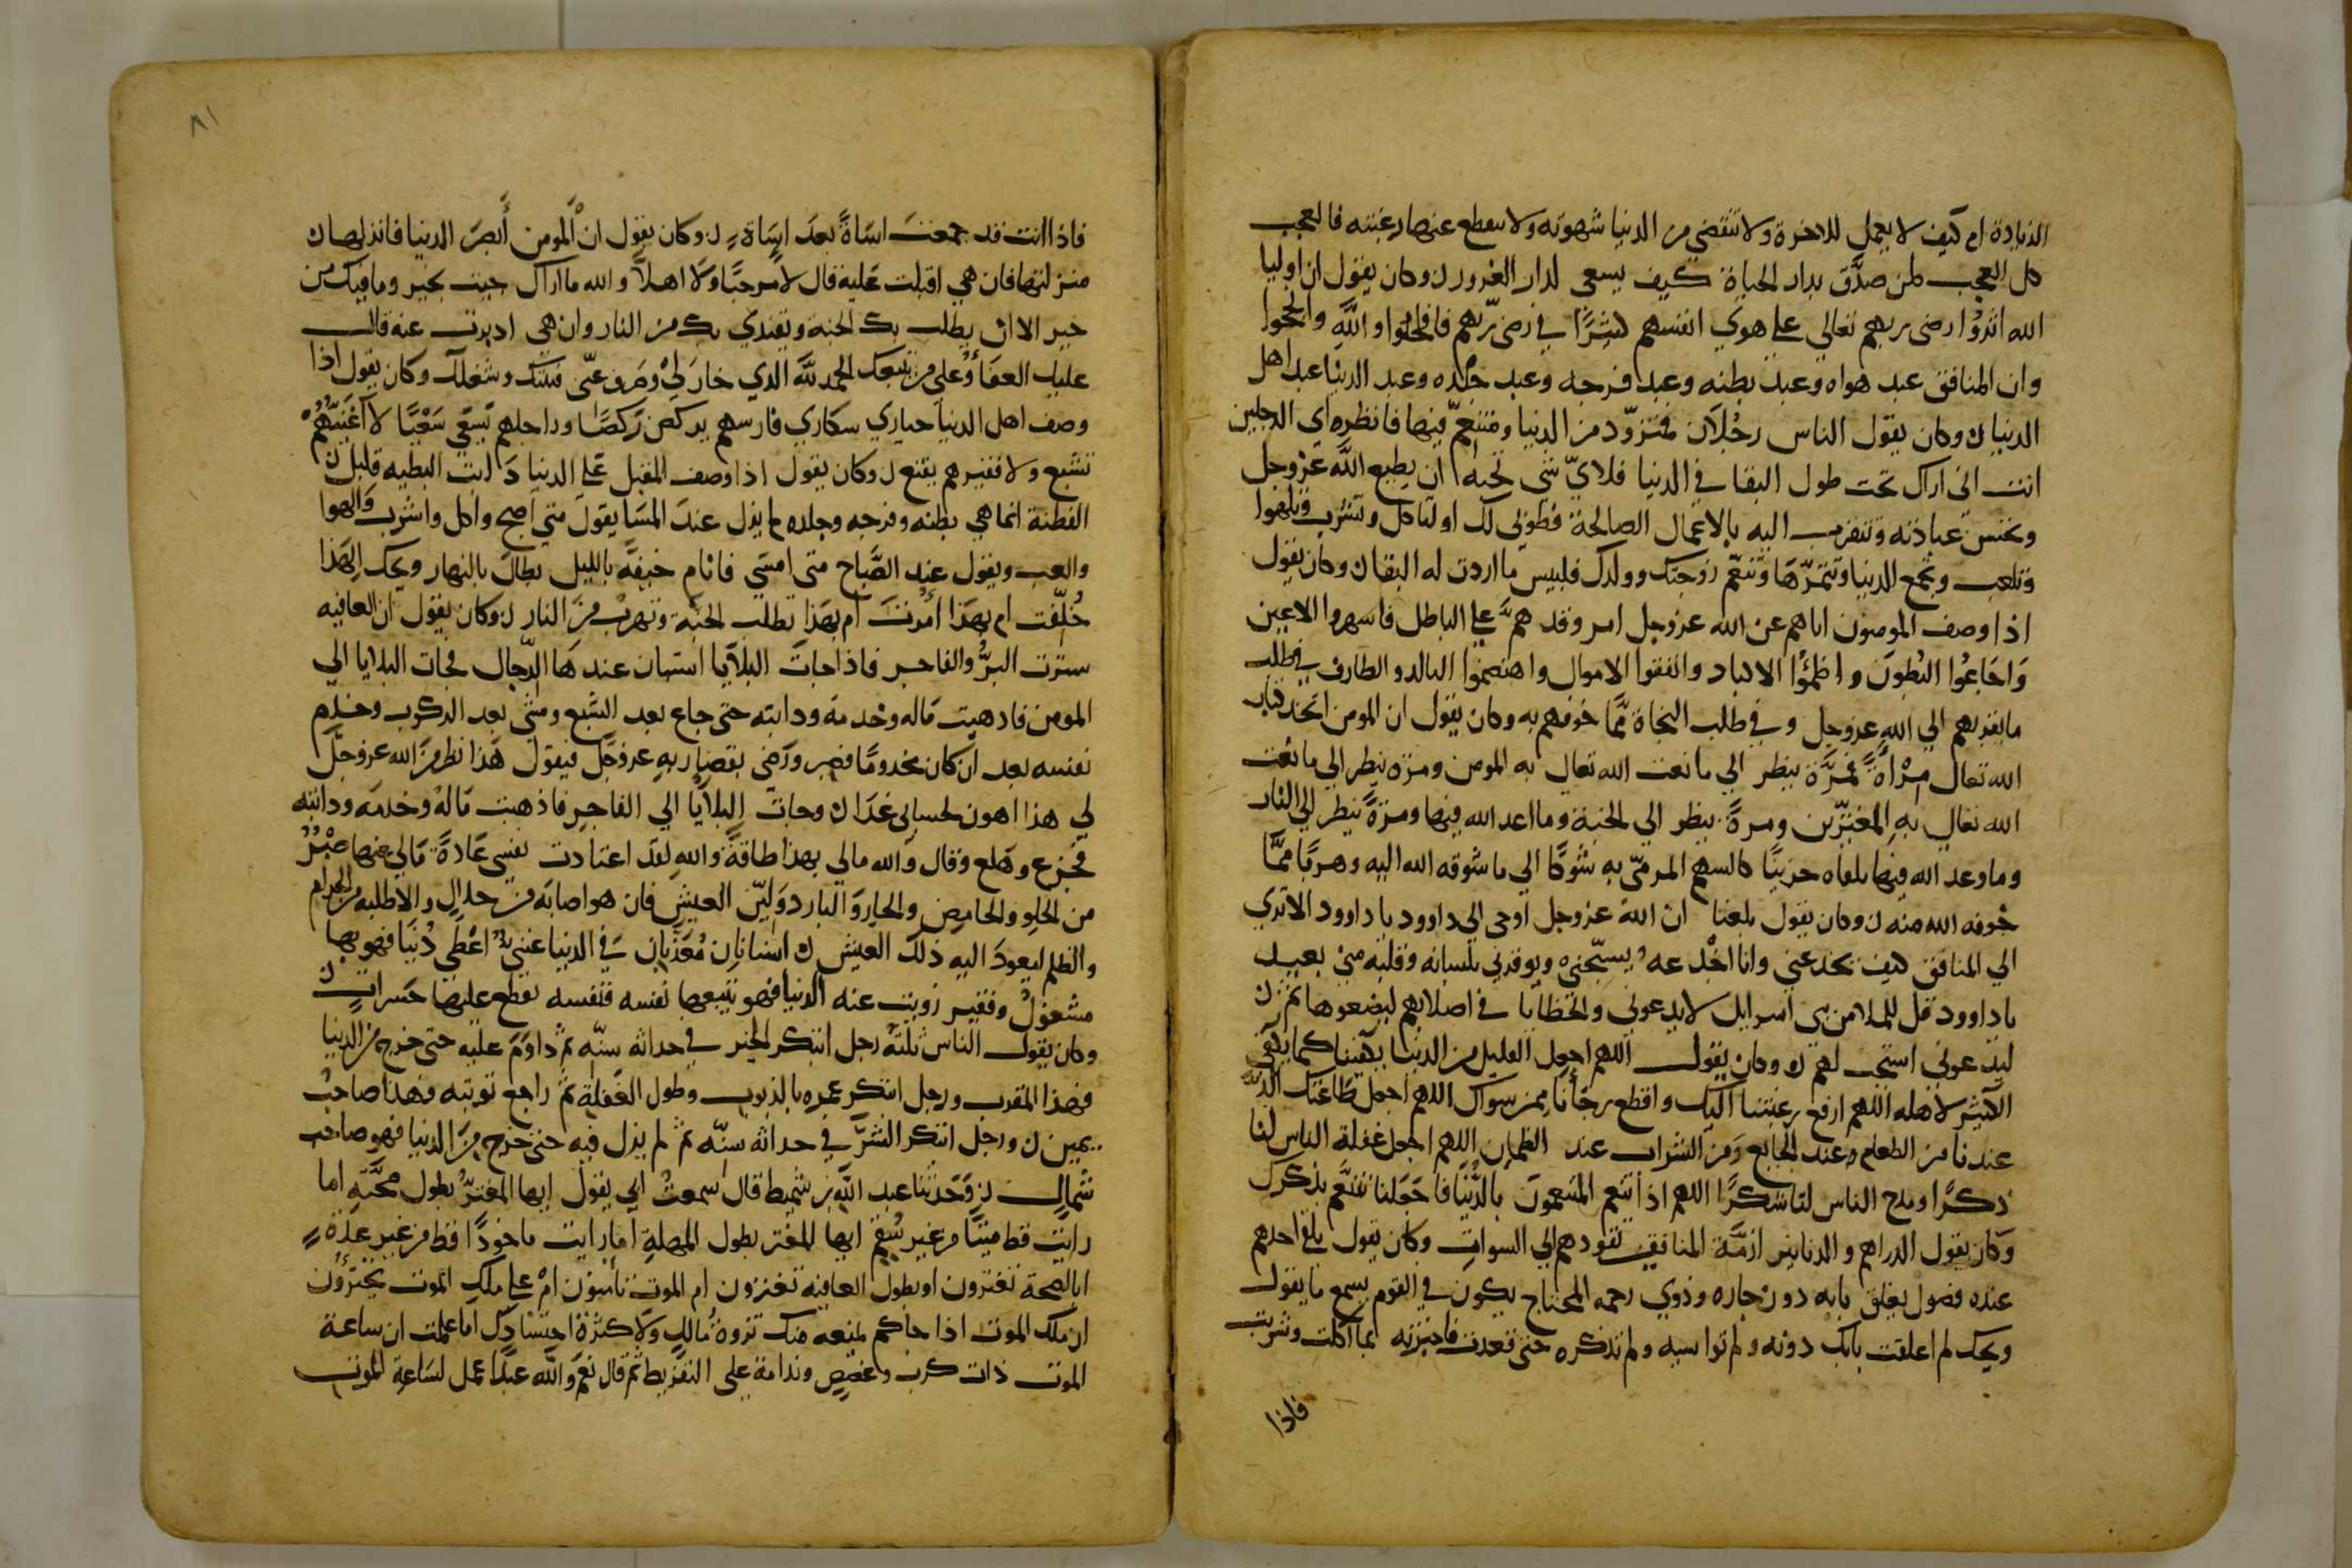 الزيادة ام كيف لا يعمل للاخرة ولا تنقضي من الدنيا شهوته ولا تنقطع عنها رغبته فالعجب
كل العجب لمن صدّق بدار الحياة كيف يسعى لدار الغرور ن وكان يقول ان اوليا
الله اثروا رضى ربهم تعالي علي هوي انفسهم في رضى ربهم فافلحوا والله وانجحوا
وان المنافق عبد هواه وعبد بطنه وعبد فرجه وعبد جلده وعبد الدنيا عبد اهل
الدنيا ن وكان يقول الناس رجلان متزوّد من الدنيا ومتنعّم فيها فانظر اي الرجلين
انت اني اراك تحب طول البقا في الدنيا فلايّ شي تحبه ان يطيع الله عز وجل
وتحسن عبادته وتتقرب اليه بالاعمال الصالحة فطوبي لك او لتاكل وتشرب وتلهوا
وتلعب وتجمع الدنيا وتثمرها وتنعّم زوجتك وولدك فلبيس ما اردت له البقا ن وكان يقول
اذا وصف المومنون اتاهم عن الله عز وجل امر وقذهم علي الباطل فاسهروا الاعين
واجاعوا البطون واظمؤا الاكباد وانفقوا الاموال واهتضموا التالد والطارف في طلب
ما يقربهم الي الله عز وجل وفي طلب النجاة ممّا خوفهم به وكان يقول ان المومن اتخذ كتاب
الله تعالي مراةً فمرّة ينظر الي ما نعت الله تعالي به المومن ومرة ينظر الي ما نعت
الله تعالي به المغترّين ومرةً ينظر الي الجنة وما اعد الله فيها ومرةً ينظر الي النار
وما وعد الله فيها تلقاه حزينًا كالسهم المرمّي به شوقًا الي ما شوقه الله اليه وهربًا ممّا
خوفه الله منه ن وكان يقول بلغنا ان الله عز وجل اوحى الي داوود يا داوود الا تري
الي المنافق كيف يخدعني وانا اخدعه يسبّحني ويوقرني بلسانه وقلبه منّي بعيد
يا داوود قل للملا من بني اسرايل لا يدعوني والخطايا في اصلابهم ليضعوها ثم
ليدعوني استجب لهم ن وكان يقول اللهم اجعل القليل من الدنيا يكفينا كما يكفي
الكثير لاهله اللهم ارفع رغبتنا اليك واقطع رجأنا ممن سواك اللهم اجعل طاعتك الذّ
عندنا من الطعام عند الجايع ومن الشراب عند الظمان اللهم اجعل غفلة الناس لنا
ذكرًا ومدح الناس لنا شكرًا اللهم اذا تنعم المتنعمون بالدنيا فاجعلنا نتنعّم بذكرك
وكان يقول الدراهم والدنانير ازمّة المنافقين تقودهم الي السوات وكان يقول بلغ احدهم
عنده فضول يغلق بابه دون جاره وذوي رحمه المحتاج يكون في القوم يسمع ما يقول
ويحك لم اغلقت بابك دونه ولم تواسيه ولم تذكره حتى قعدت فاخبرته بما اكلت وشربت
فاذا
٨١
فاذا انت قد جمعت اساةً بعد اساة ن وكان يقول ان المومن أبصر الدنيا فانزلها
منزلتها فان هي اقبلت عليه قال لا مرحبًا ولا اهلًا والله ما اراك جيت بخير وما فيك من
خير الا ان يطلب بك الجنة ويفتدي بك من النار وان هي ادبرت عنه قال
عليك العفاؤ وعلي من يتبعك الحمد لله الذي خار لي وصرف عنّي فتنتك وشغلك وكان يقول اذا
وصف اهل الدنيا حياري سكاري فارسهم يركض ركضًا وراجلهم يسعي سعيًا لا غنيّهم
يشبع ولا فقيرهم يقنع ن وكان يقول اذا وصف المقبل علي الدنيا دايب البطنه قليل
الفطنة انما هي بطنه وفرجه وجلده لم يزل عند المسا يقول متي اصبح واكل واشرب والهوا
والعب ويقول عند الصّباح متى امسي فانام جيفةً بالليل بطال بالنهار ويحك الهذا
خلقت ام بهذا امرت ام بهذا تطلب الجنة وتهرب من النار ن وكان يقول ان العافيه
سترت البرّ والفاجر فاذا جات البلايا استبان عندها الرّجال فجات البلايا الي
المومن فاذهبت ماله وخدمه ودابته حتى جاع بعد الشبع ومشى بعد الركوب وخدم
نفسه بعد ان كان مخدومًا فصبر ورضي بقضا ربه عز وجل فيقول هذا نظر من الله عز وجل
لي هذا اهون لحسابى غدا ن وجات البلايا الي الفاجر فاذهبت ماله وخدمه ودابته
فجزع وهلع وقال والله مالي بهذا طاقةٌ والله لقد اعتادت نفسي عادةً مالي عنها صبرٌ
من الحلو والحامض والحار والبارد ولين العيش فان هو اصابه من حلال والا طلبه من الحرام
والظلم ليعود اليه ذلك العيش ن اسانان معذبان في الدنيا غنيٌّ اعطي دنيا فهو بها
مشغول وفقير زويت عنه الدنيا فهو يتبعها نفسه فنفسه تقطع عليها حسرات
وكان يقول الناس ثلثة رجل ابتكر الخير في حداثه سنّه ثم داوم عليه حتى خرج من الدنيا
فهذا المقرب ورجل ابتكر عمره بالذنوب وطول الغفلة ثم راجع توبته فهذا صاحبُ
يمين ن ورجل ابتكر الشرّ في حداثه سنّه ثم لم يزل فيه حتى خرج من الدنيا فهو صاحب
شمال ن وحدثنا عبد الله بن شميط قال سمعتُ ابي يقول ايها المغترّ بطول صحّته اما
رايت قط ميتًا من غير سقم ايها المغتر بطول المهلة اما رايت ماخوذًا قط من غير عدّة
ابالصحة تغترون او بطول العافيه تغترون ام الموت تأمنون ام علي ملك الموت تجترؤن
ان ملك الموت اذا جاكم لم يمنعه منك ثروة مالك ولا كثرة احتشادك اما علمت ان ساعة
الموت ذات كرب وغصص وندامة على التفريط ثم قال نعم والله عبدًا عمل لساعة الموت